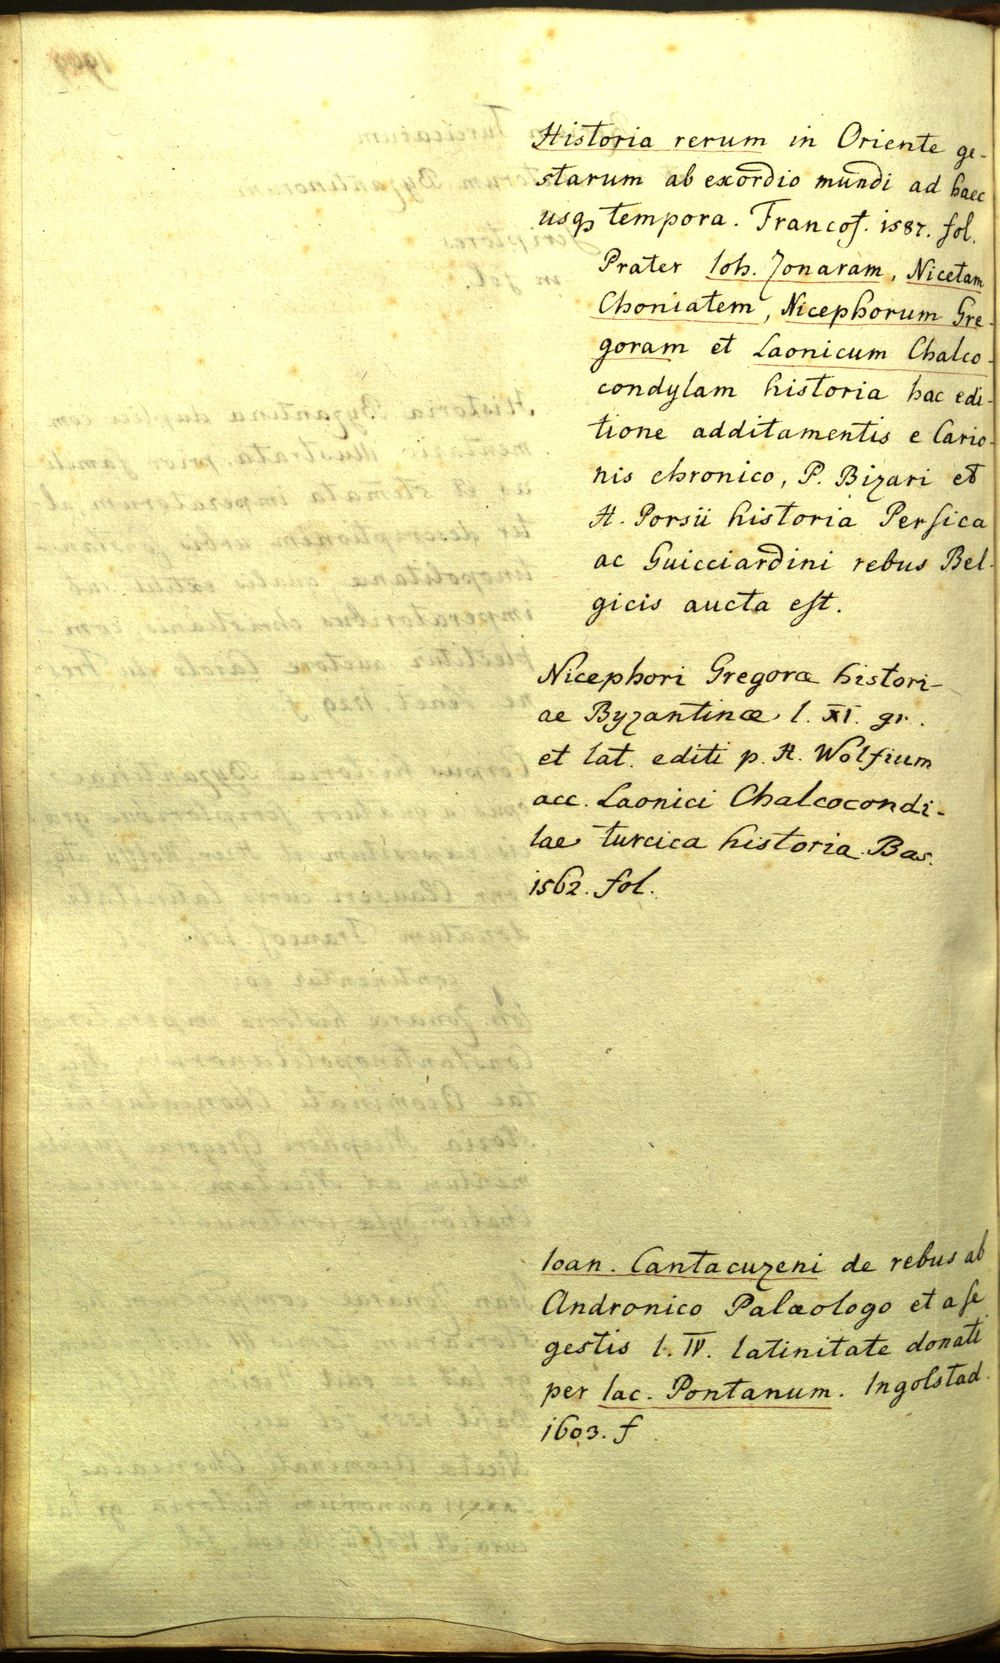 Historia rerum in Oriente ge-
starum ab exordio mundi ad haec
usq tempora. Francof. 1587. fol.
Prater Ioh. Zonaram, Nicetam
Choniatem, Nicephorum Gre-
goram et Laonicum Chalco-
condylam historia hac edi-
tione additamentis e Cario-
nis chronico, P. Bizari et
H. Porsii historia Persica
ac Guicciardini rebus Bel-
gicis aucta est.
Nicephori Gregoræ histori-
ae Byzantinæ l. XI. gr.
et lat. editi p. H. Wolfium
acc. Laonici Chalcocondi-
lae turcica historia Bas.
1562. fol.
Ioan. Cantacuzeni de rebus ab
Andronico Palæologo et a se
gestis l. IV. latinitate donati
per Iac. Pontanum. Ingolstad.
1603. f